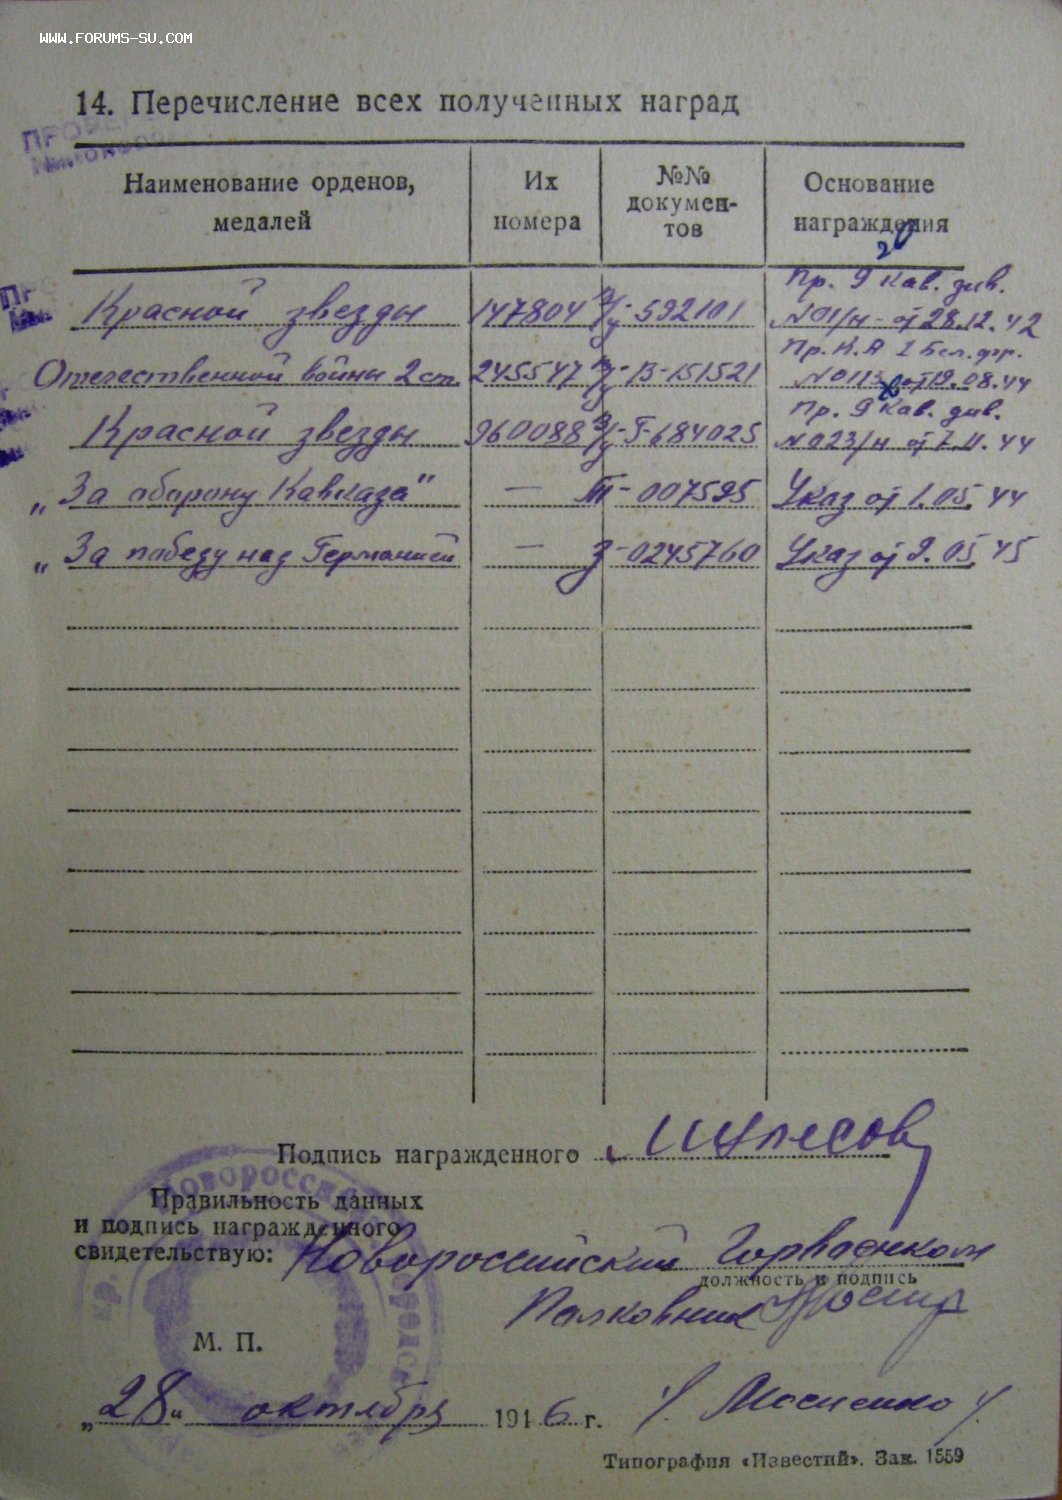 WWW.FORUMS-SU.COM
14. Перечисление всех полученных наград
Наименование орденов, медалей
Их номера
№№ докумен-тов
Основание награждения
20
Пр. 9 Кав. див.
Красной звезды 147804 592101 №01/н - от 28.12.42
Пр. К.А 1 Бел. фр.
Отечественной войны 2 ст. 245547 В-151521 №0113 от 19.08.44
Пр. 9 Кав. див.
Красной звезды 960088 Г-684025 №023/н от 7.11.44
„За оборону Кавказа" — Т-007595 Указ от 1.05.44
„За победу над Германией — З-0245760 Указ от 9.05.45
Подпись награжденного
Правильность данных
и подпись награжденного
свидетельствую: Новороссийский Горвоенком
должность и подпись
Полковник
М. П.
„28" октября 1946 г. /Мосиенко/.
Типография «Известий». Зак. 1559